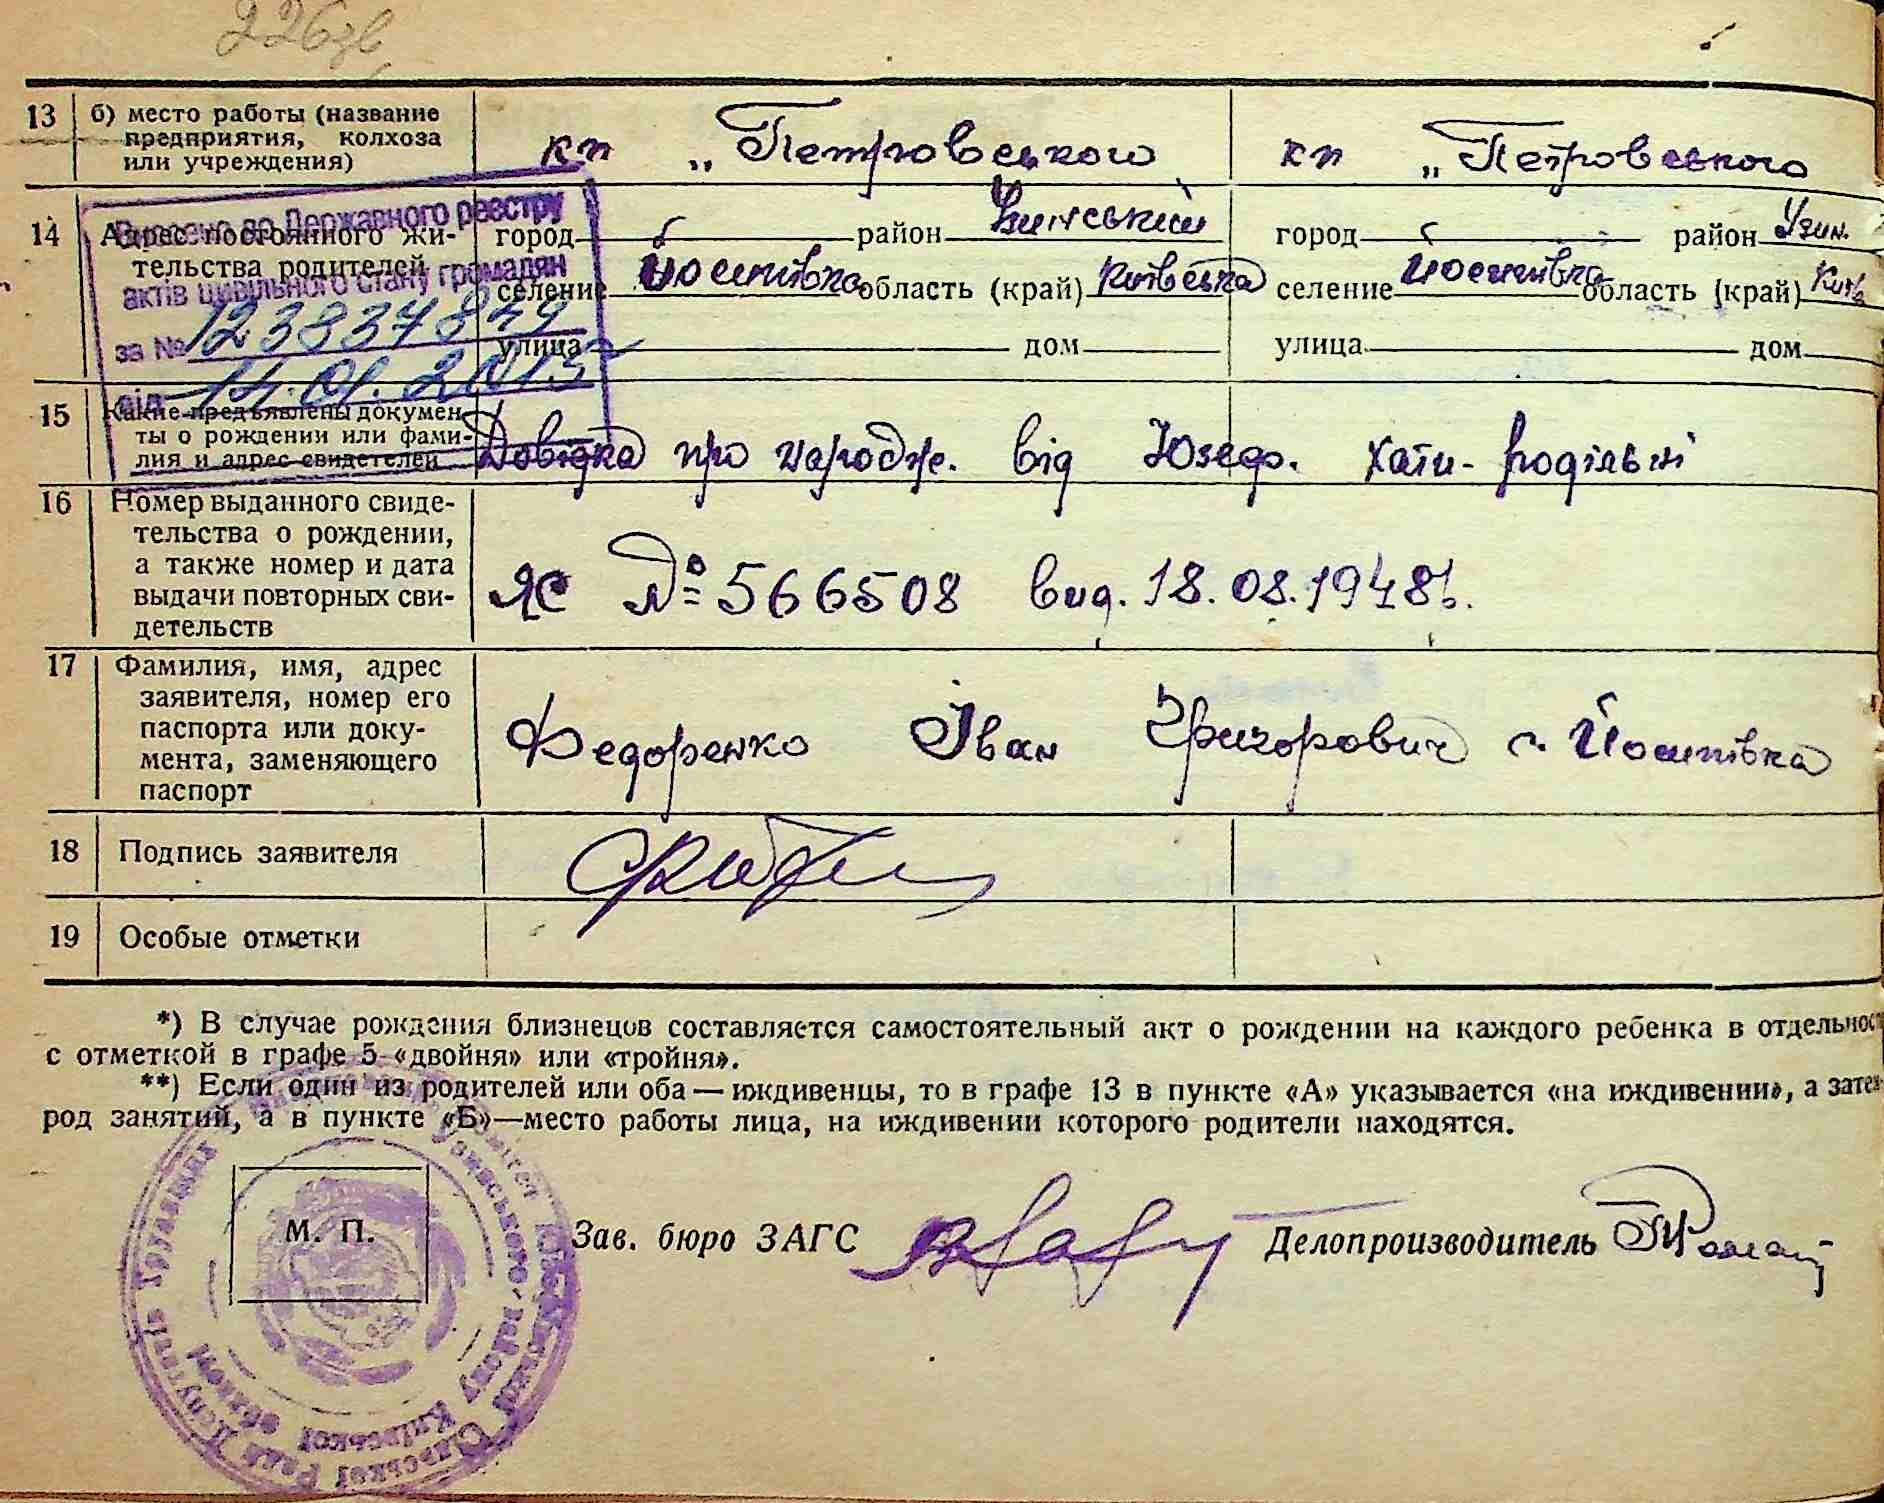 226зв
13 б) место работы (название
предприятия, колхоза
или учреждения)
кп „Петровського кп „Петровського
Внесено до Державного реєстру
актів цивільного стану громадян
за № 123837849
від 14.01.2013
14 Адрес постоянного жи-
тельства родителей
город район Узинський город район Узин.
селение Йосипівка область (край) Київська селение Йосипівка область (край) Київ
улица дом улица дом
15 Какие предъявлены докумен
ты о рождении или фами-
лия и адрес свидетелей
Довідка про народже. від Юзеф. хати-родільні
16 Номер выданного свиде-
тельства о рождении,
а также номер и дата
выдачи повторных сви-
детельств
ЯС № 566508 вид. 18.08.1948
17 Фамилия, имя, адрес
заявителя, номер его
паспорта или доку-
мента, заменяющего
паспорт
Федоренко Іван Григорович с. Йосипівка
18 Подпись заявителя
19 Особые отметки
*) В случае рождения близнецов составляется самостоятельный акт о рождении на каждого ребенка в отдельност
с отметкой в графе 5 «двойня» или «тройня».
**) Если один из родителей или оба — иждивенцы, то в графе 13 в пункте «А» указывается «на иждивении», а затем
род занятий, а в пункте «Б»—место работы лица, на иждивении которого родители находятся.
М. П.
Зав. бюро ЗАГС Делопроизводитель
Сільської Ради Депутатів Трудящих
Узинського району Київської області